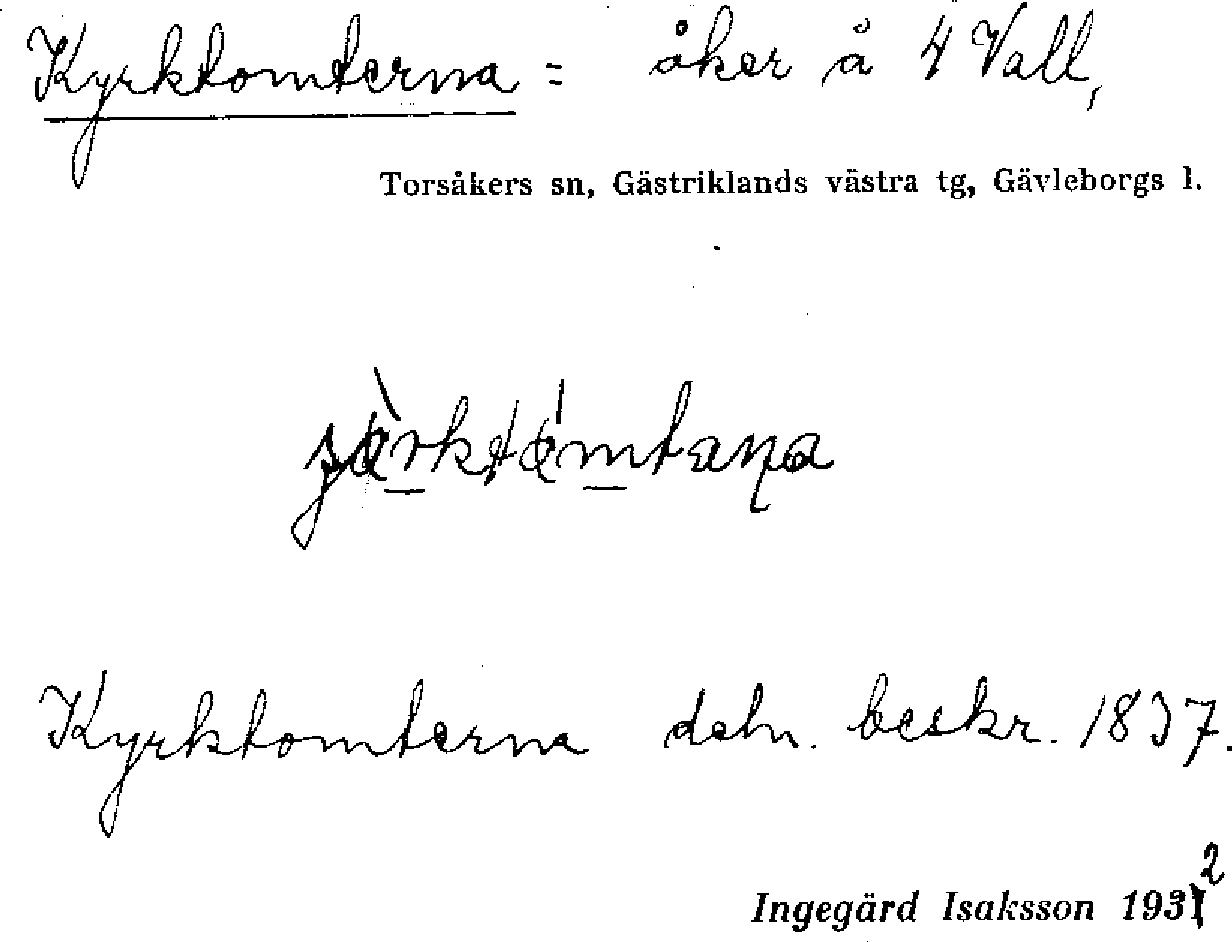 Kyrktomterna = åker å 4 Vall,
Torsåkers sn, Gästriklands västra tg, Gävleborgs l.
Kyrktomterna dahr. beskr. 1837.
Ingegärd Isaksson 1932